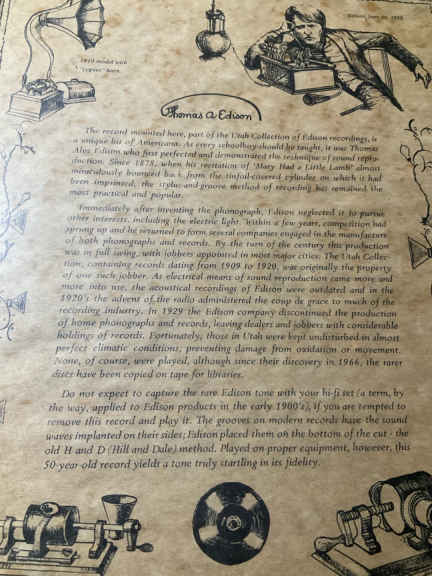 1910 model with
"cygnet" horn.
Edison, June 16, 1888
Thomas A Edison
The record mounted here, part of the Utah Collection of Edison recordings, is
a unique bit of Americana. As every schoolboy should be taught, it was Thomas
Alva Edison who first perfected and demonstrated the technique of sound repro-
duction. Since 1878, when his recitation of 'Mary Had a Little Lamb' almost
miraculously bounced back from the tinfoil-covered cylinder on which it had
been imprinted, the stylus-and-groove method of recording has remained the
most practical and popular.
Immediately after inventing the phonograph, Edison neglected it to pursue
other interests, including the electric light. Within a few years, competition had
sprung up and he returned to form several companies engaged in the manufacture
of both phonographs and records. By the turn of the century this production
was in full swing, with jobbers appointed in most major cities. The Utah Collec-
tion, containing records dating from 1909 to 1920, was originally the property
of one such jobber. As electrical means of sound reproduction came more and
more into use, the acoustical recordings of Edison were outdated and in the
1920's the advent of the radio administered the coup de grace to much of the
recording industry. In 1929 the Edison company discontinued the production
of home phonographs and records, leaving dealers and jobbers with considerable
holdings of records. Fortunately, those in Utah were kept undisturbed in almost
perfect climatic conditions, preventing damage from oxidation or movement.
None, of course, were played, although since their discovery in 1966, the rarer
discs have been copied on tape for libraries.
Do not expect to capture the rare Edison tone with your hi-fi set (a term, by
the way, applied to Edison products in the early 1900's), if you are tempted to
remove this record and play it. The grooves on modern records have the sound
waves implanted on their sides; Edison placed them on the bottom of the cut - the
old H and D (Hill and Dale) method. Played on proper equipment, however, this
50-year-old record yields a tone truly startling in its fidelity.